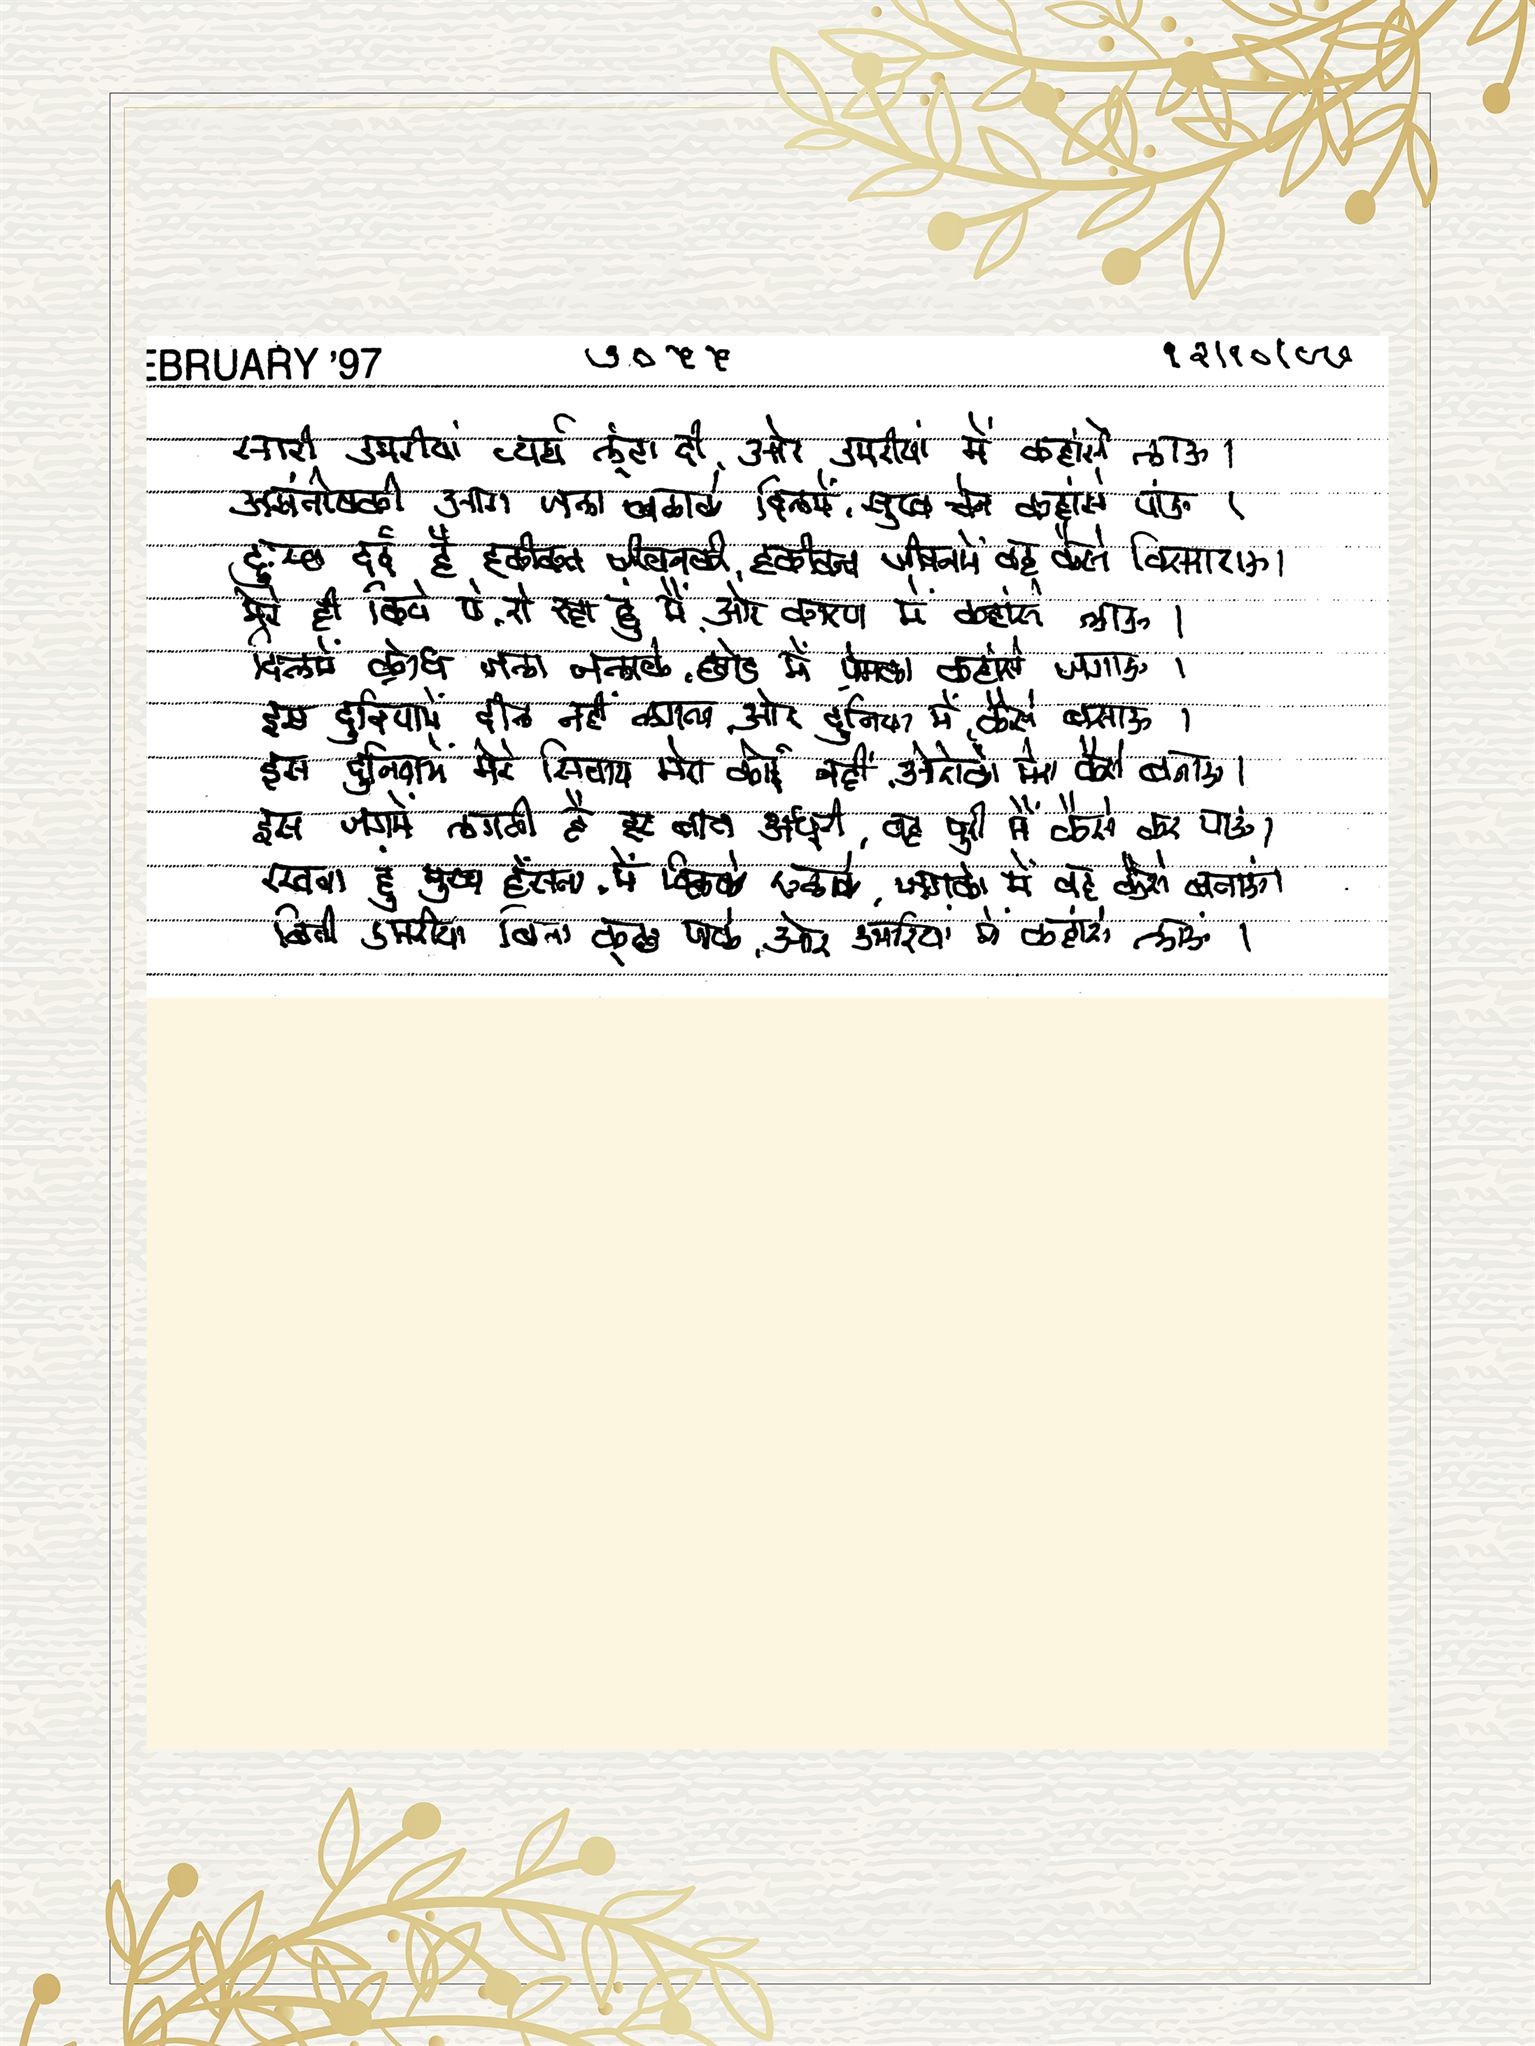 EBRUARY '97 ७०५५ १२/१०/९७
सारी उमरीयां व्यर्थ लूंटा दी, और उमरीयां में कहांसे लाऊ ।
असंतोषकी आग जला जलाके दिलमें, सुख चेन कहांसे पांऊ ।
दुःख दर्द है हकीकत जीवनकी, हकीकत जीवनमें वह कैसे विसाराऊ ।
मेरे ही किये पे, रो रहा हुं मैं, और कारण में कहांसे लाऊ ।
दिलमें क्रोध जला जलाके, में प्रेमका कहांसे जगाऊ ।
इस दुनियामें दील नहीं लगता, और दुनिया में कैसे बसाऊ ।
इस दुनियामें मेरे सिवाय मेरा कोई नहीं, औरोको मेरा कैसे बनाऊ ।
इस जगमें लगती है हर बात अधुरी, वह पुरी मैं कैसे कर पाऊं ।
रखता हुं मुख हँसता, में दिलके, जगको में वह कैसे बनाऊं ।
बिती उमरीया बिना कुछ पाके, और उमरियां में कहांसे लाऊं ।